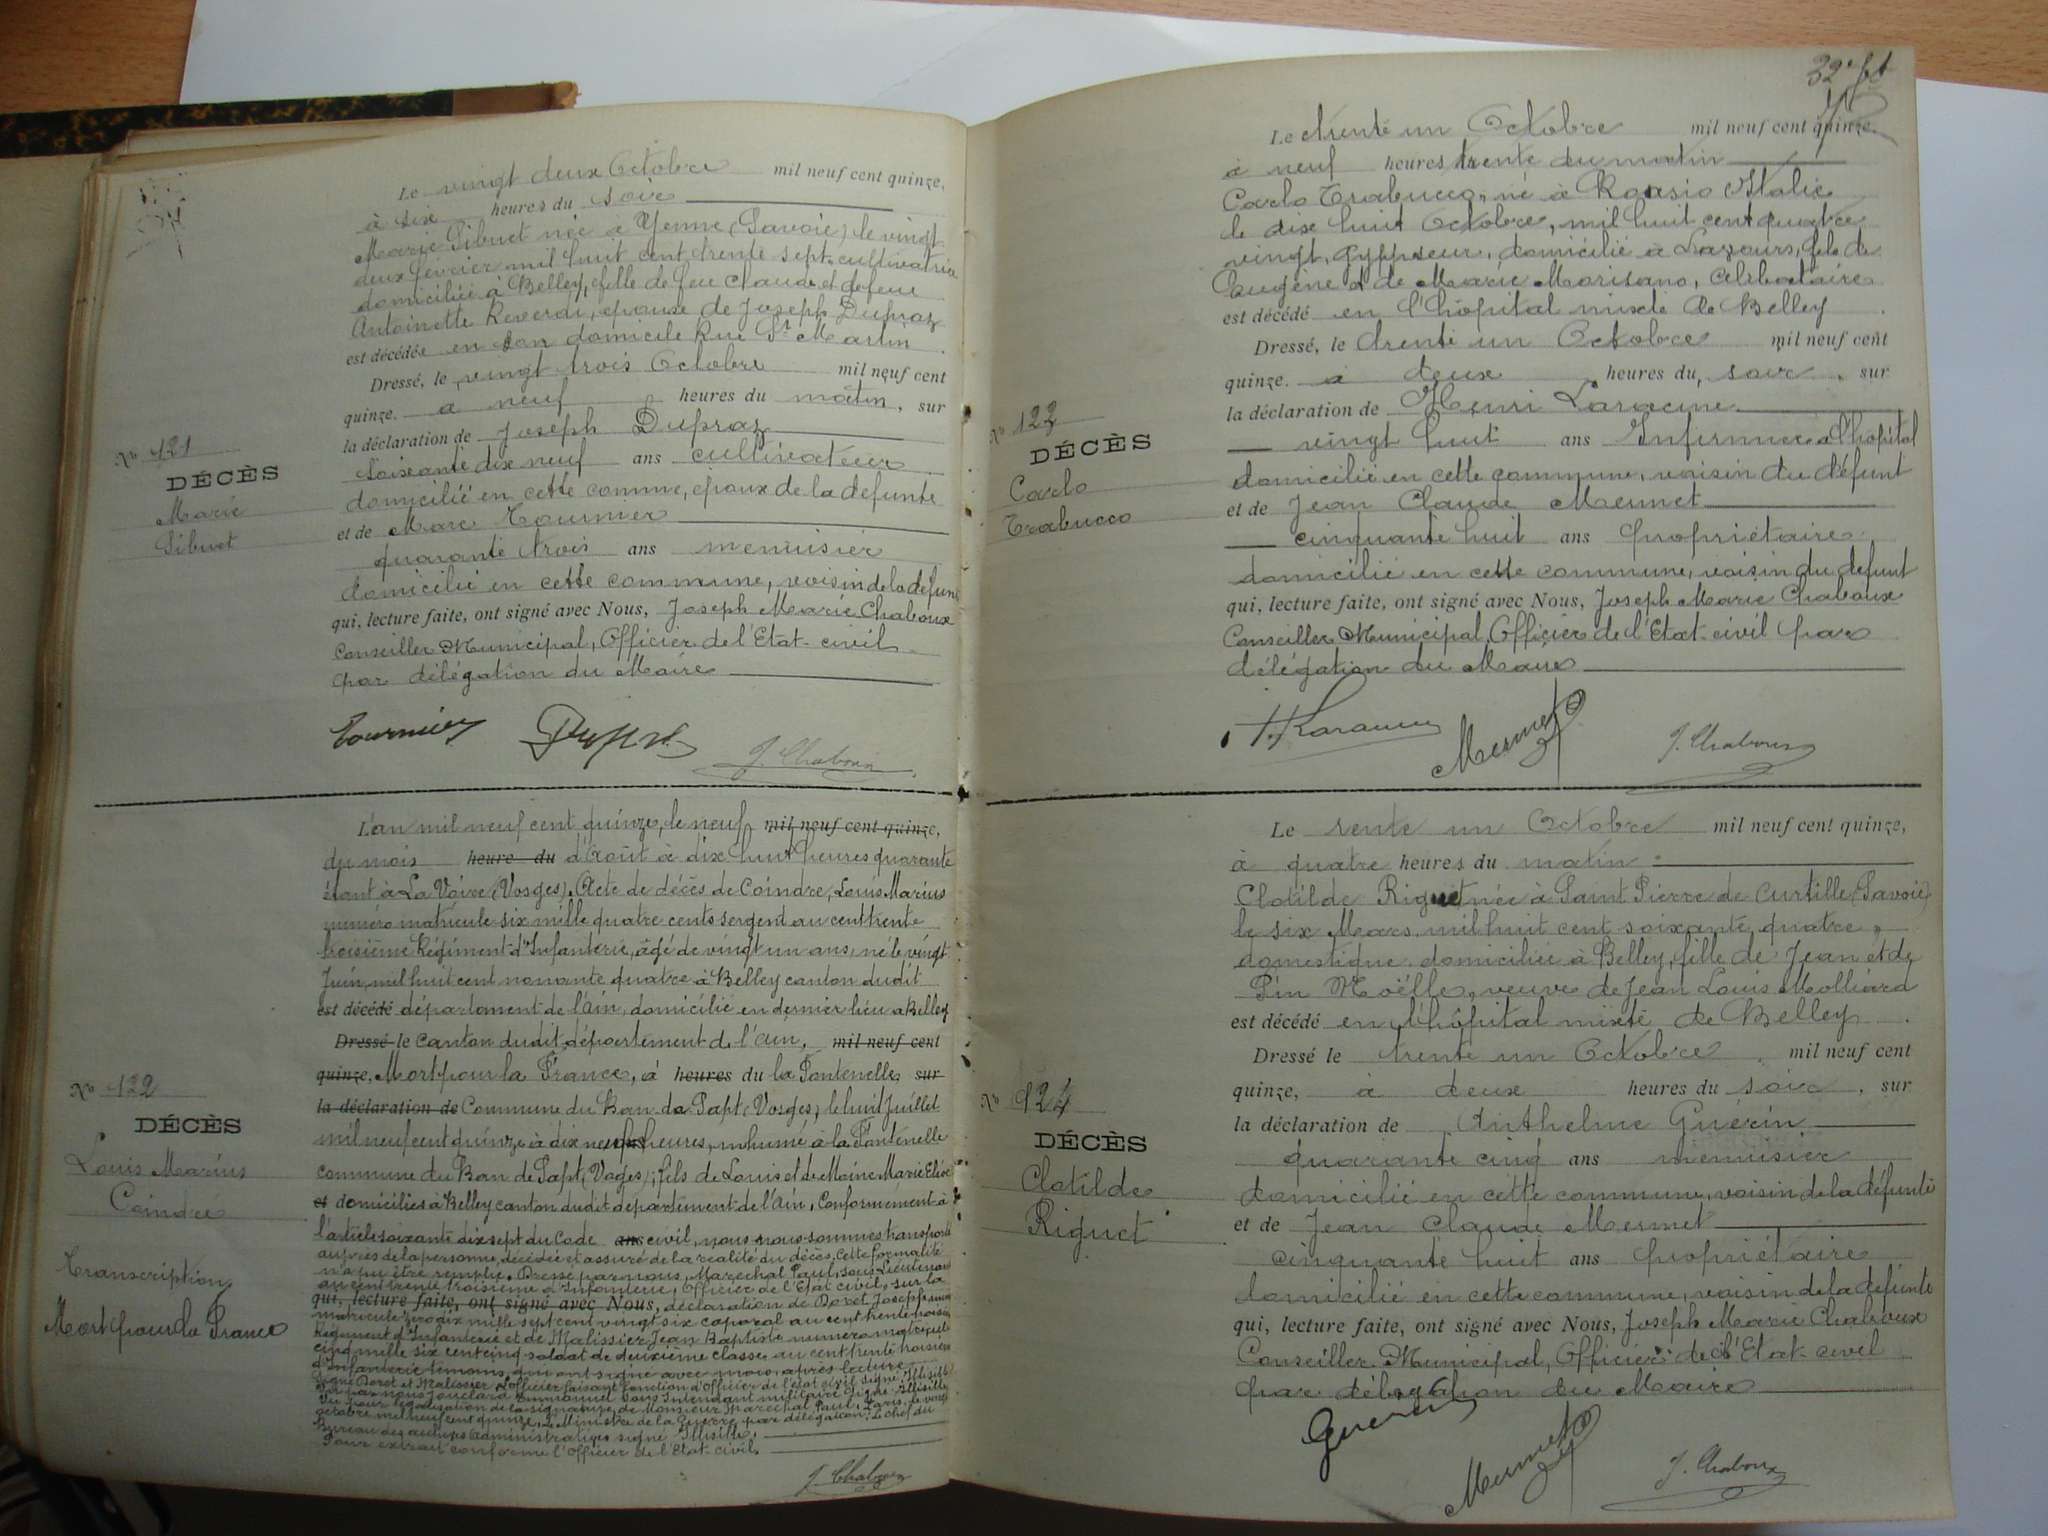 Le vingt deux Octobre mil neuf cent quinze,
à six heures du soir
Marie Sibuet née à Yenne (Savoie) le vingt
deux février mil huit cent trente sept, cultivatrice
domiciliée à Belley, fille de feu Claude et defeue
Antoinette Reverdi, épouse de Joseph Dupraz
est décédée en son domicile Rue St Martin
Dressé, le vingt trois Octobre mil neuf cent
quinze. a neuf heures du matin, sur
la déclaration de Joseph Dupraz
soixante dix neuf ans cultivateur
domicilié en cette comme, époux de la defunte
et de Marc Tournier
quarante trois ans menuisier
domicilié en cette commune, voisin de la defunte
qui, lecture faite, ont signé avec Nous, Joseph Marie Chaboux
Conseiller Municipal, Officier de l'Etat-civil
par délégation du Maire
No 121
DÉCÈS
Marie
Sibuet
Tournier Dupraz J. Chaboux
L'an mil neuf cent quinze, le neuf mil neuf cent quinze,
du mois heure du d'Août à dix huit heures quarante
étant à La Voivre (Vosges). Acte de décès de Coindre, Louis Marius
numéro matricule six mille quatre cents sergent au cent trente
troisième Régiment d'Infanterie, âgé de vingt un ans, né le vingt
Juin, mil huit cent nonante quatre à Belley canton dudit
est décédé département de l'ain, domicilié en dernier lieu a Belley
Dressé le canton dudit, département de l'ain, mil neuf cent
quinze. Mort pour la France, à heures du la Fontenelle sur
la déclaration de Commune du Ban de Sapt (Vosges) le huit Juillet
mil neuf cent quinze à dix neuf heures, inhumé à la Fontenelle
commune du Ban de Sapt (Voges), fils de Louis et de Moine Marie Elise
et domiciliés à Belley canton dudit département de l'ain, Conformément à
l'article soixante dix sept du Code ans civil, nous nous sommes transporté
auprès de la personne décédée et assuré de la réalité du décès. Cette formalité
n'a pu être remplie. Dressé par nous, Maréchal Paul, Sous Lieutenant
au cent trente troisième d'Infanterie, Officier de l'Etat civil, sur la
qui, lecture faite, ont signé avec Nous, déclaration de Doret Joseph
matricule zéro dix mille sept cent vingt six caporal au cent trente troisième
Régiment d'Infanterie et de Malissier Jean Baptiste numéro matricule
cinq mille six cent cinq soldat de deuxième classe au cent trente troisième
d'Infanterie témoins, qui ont signé avec nous, après lecture
Signé Doret et Malissier. L'officier faisant fonction d'officier de l'état civil signé Illisible
Vu par nous Emmanuel Sous Intendant militaire signé Illisible
Vu pour légalisation de la signature de Monsieur Maréchal Paul, Paris, le vingt
octobre mil neuf cent quinze, Le Ministre de la Guerre, par délégation, Le chef du
Bureau des archives administratives signé Illisible.
Pour extrait conforme l'Officier de l'Etat civil.
No 122
DÉCÈS
Louis Marius
Coindre
Transcription
Mort pour la France
J. Chaboux
32e
Le trente un Octobre mil neuf cent quinze
à neuf heures trente du matin
Carlo Trabucco, né à Roasio Italie
le dix huit Octobre, mil huit cent quatre
vingt, gyppseur, domicilié à Lazours, fils de
Eugène & de Marie Morisano, célibataire
est décédé en l'hôpital mixte de Belley
Dressé, le trente un Octobre mil neuf cent
quinze. à deux heures du, soir, sur
la déclaration de Henri Laracine
vingt huit ans Infirmier à l'hôpital
domicilié en cette commune, voisin du défunt
et de Jean Claude Mermet
cinquante huit ans propriétaire
domicilié en cette commune, voisin du defunt
qui, lecture faite, ont signé avec Nous, Joseph Marie Chaboux
Conseiller Municipal, Officier de l'Etat-civil par
délégation du Maire
No 123
DÉCÈS
Carlo
Trabucco
H. Laracine Mermet J. Chaboux
Le trente un Octobre mil neuf cent quinze,
à quatre heures du matin
Clotilde Riguet née à Saint Pierre de Curtille (Savoie)
le six Mars mil huit cent soixante quatre,
domestique domiciliée à Belley, fille de Jean et de
Pin Noëlle, veuve de Jean Louis Molliard
est décédé en l'hôpital mixte de Belley
Dressé le trente un Octobre mil neuf cent
quinze, à deux heures du soir, sur
la déclaration de Anthelme Guérin
quarante cinq ans menuisier
domicilié en cette commune, voisin de la défunte
et de Jean Claude Mermet
cinquante huit ans propriétaire
domicilié en cette commune, voisin de la défunte
qui, lecture faite, ont signé avec Nous, Joseph Marie Chaboux
Conseiller Municipal, Officier de l'Etat-civil
par délégation du Maire
No 124
DÉCÈS
Clotilde
Riguet
Guerin Mermet J. Chaboux